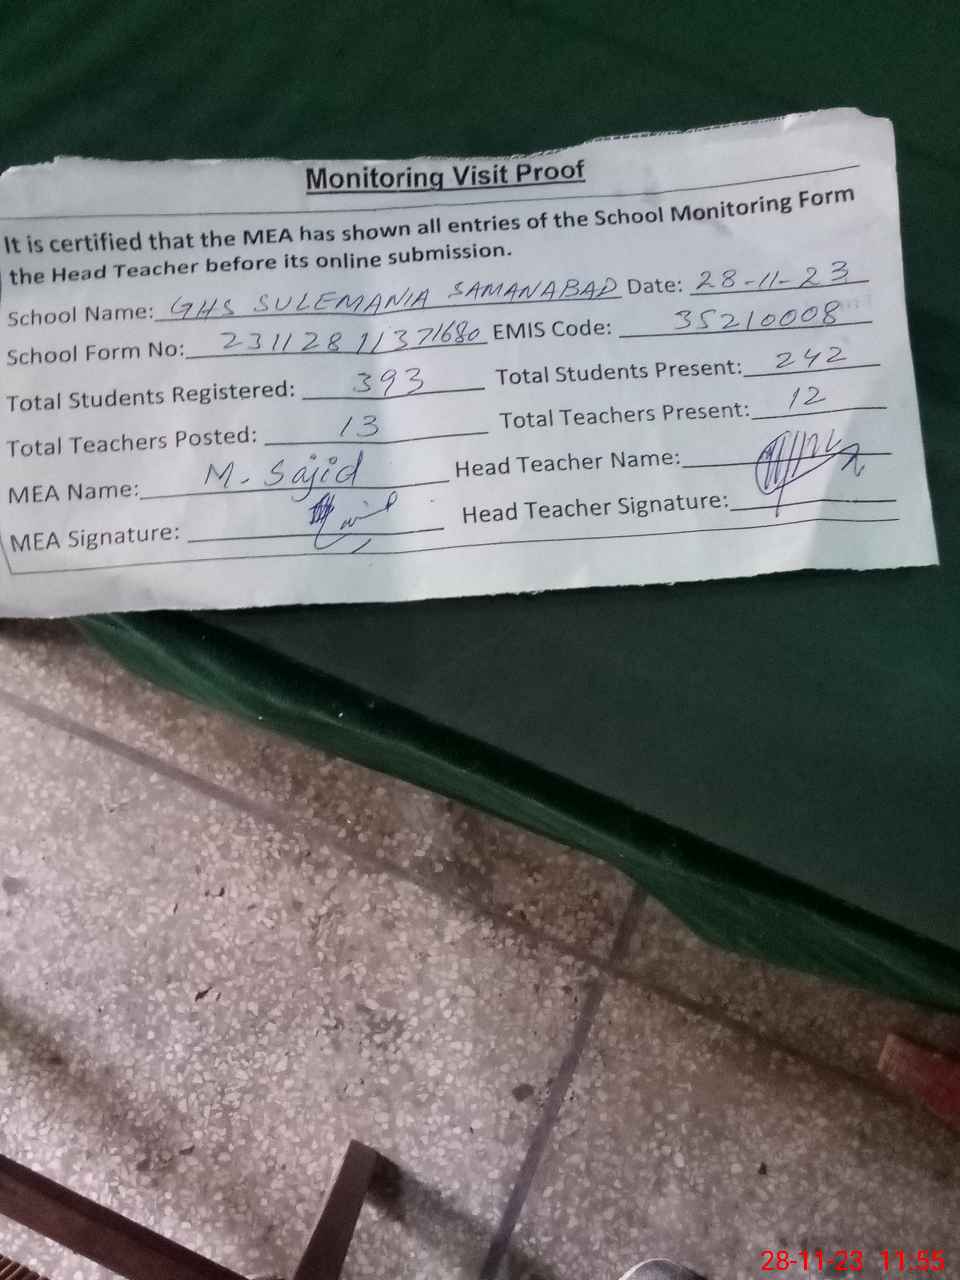 Monitoring Visit Proof
It is certified that the MEA has shown all entries of the School Monitoring Form
the Head Teacher before its online submission.
School Name: GHS SULEMANIA SAMANABAD Date: 28-11-23
School Form No: 23112811371680 EMIS Code: 35210008
Total Students Registered: 393 Total Students Present: 242
Total Teachers Posted: 13 Total Teachers Present: 12
MEA Name: M. Sajid Head Teacher Name:
MEA Signature: Head Teacher Signature:
28-11-23 11:55